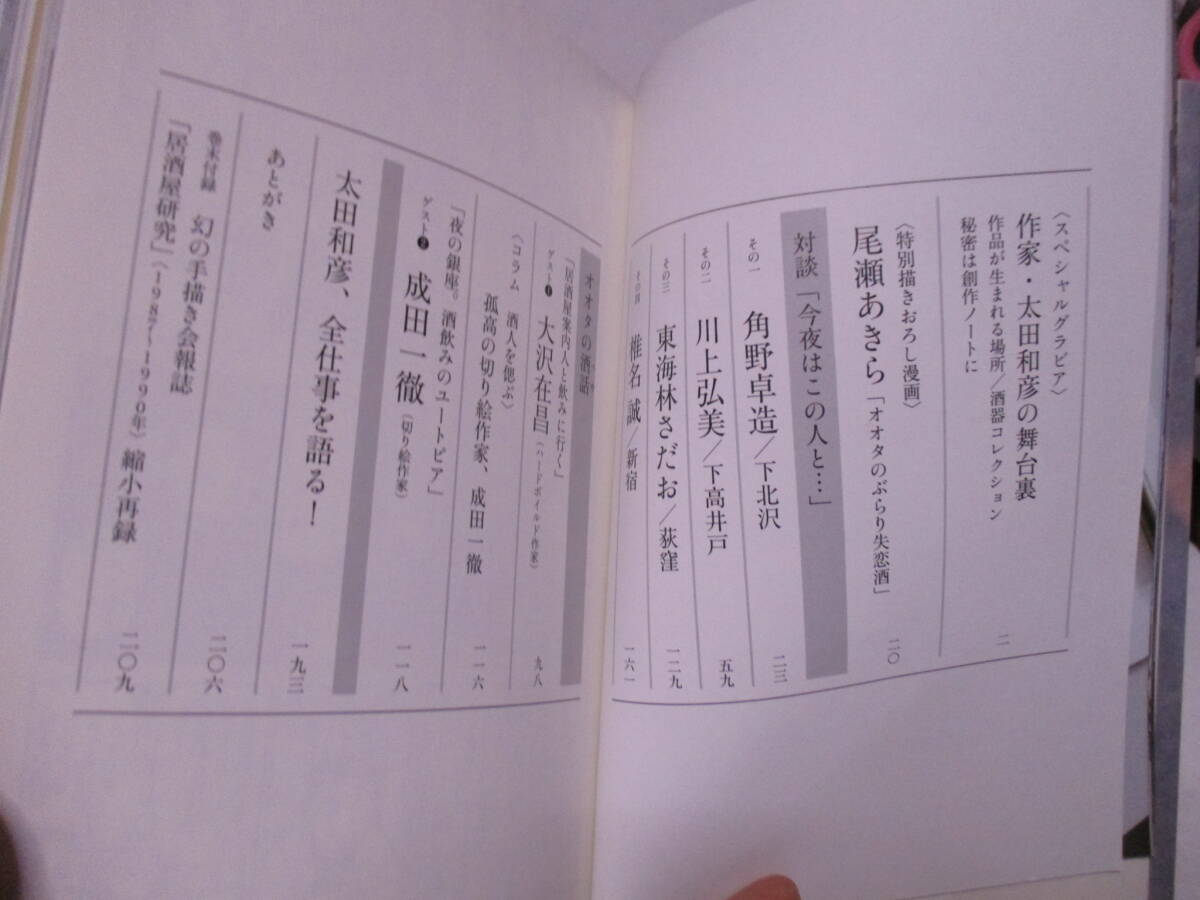 〈スペシャルグラビア〉
作家・太田和彦の舞台裏
作品が生まれる場所/酒器コレクション
秘密は創作ノートに
二
〈特別描きおろし漫画〉
尾瀬あきら「オオタのぶらり失恋酒」
二〇
対談「今夜はこの人と…」
その一 角野卓造/下北沢
二三
その二 川上弘美/下高井戸
五九
その三 東海林さだお/荻窪
一二九
その四 椎名誠/新宿
一六一
オオタの酒話
「居酒屋案内人と飲みに行く」
ゲスト❶ 大沢在昌(ハードボイルド作家)
九八
〈コラム 酒人を偲ぶ〉
孤高の切り絵作家、成田一徹
一一六
「夜の銀座。酒飲みのユートピア」
ゲスト❷ 成田一徹(切り絵作家)
一一八
太田和彦、全仕事を語る!
一九三
あとがき
二〇六
巻末付録 幻の手描き会報誌
「居酒屋研究」(1987〜1990年)縮小再録
二〇九